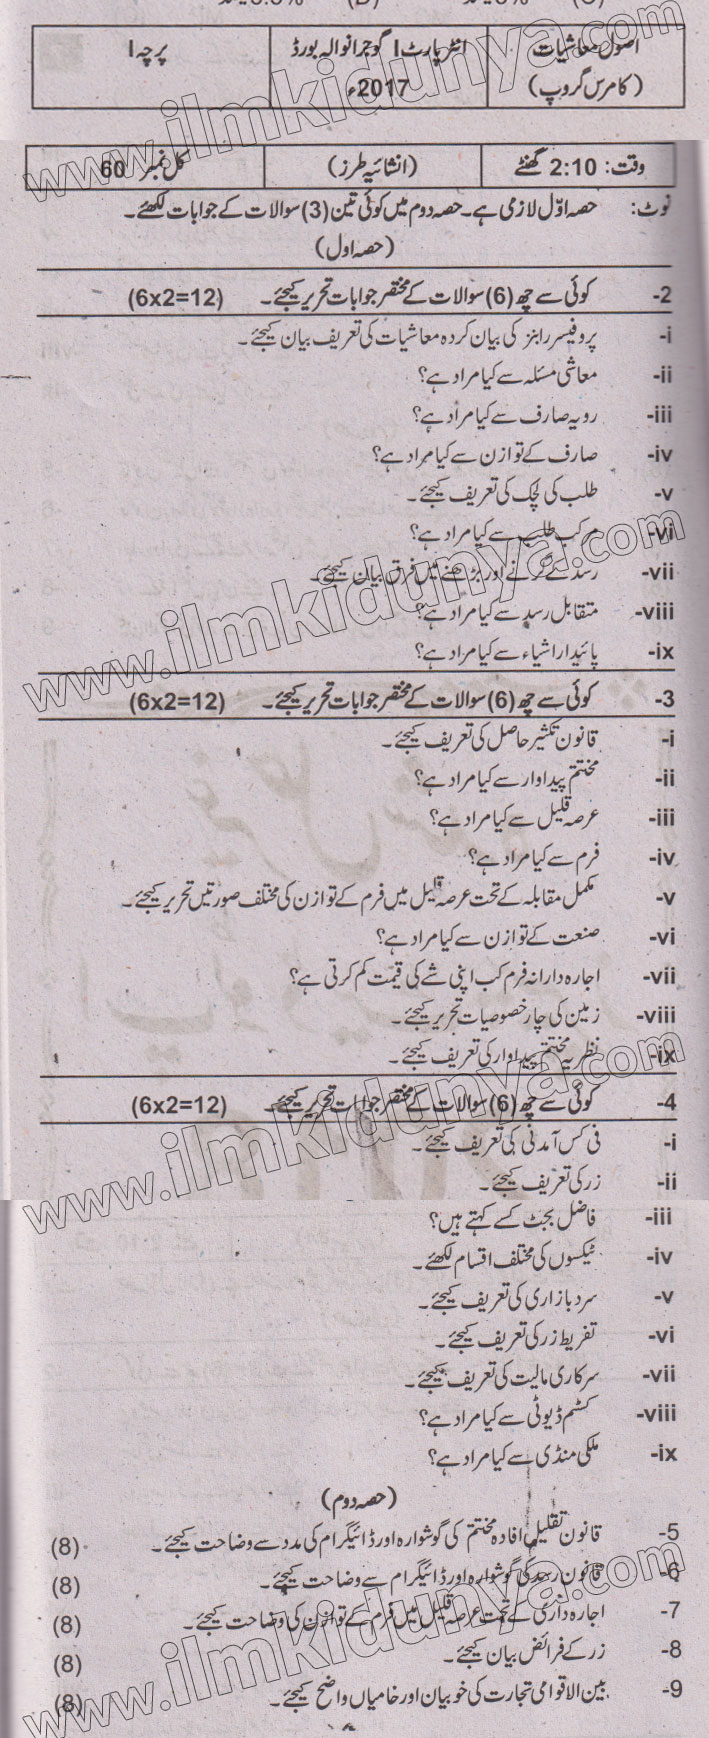 (C) (D)
اصول معاشیات انٹر پارٹ I گوجرانوالہ بورڈ پرچہ I
(کامرس گروپ) 2017ء
وقت: 2:10 گھنٹے (انشائیہ طرز) کل نمبر 60
نوٹ: حصہ اوّل لازمی ہے۔ حصہ دوم میں کوئی تین (3) سوالات کے جوابات لکھئے۔
(حصہ اول)
2- کوئی سے چھ (6) سوالات کے مختصر جوابات تحریر کیجئے۔ (6x2=12)
i- پروفیسر رابنز کی بیان کردہ معاشیات کی تعریف بیان کیجئے۔
ii- معاشی مسئلہ سے کیا مراد ہے؟
iii- رویہ صارف سے کیا مراد ہے؟
iv- صارف کے توازن سے کیا مراد ہے؟
v- طلب کی لچک کی تعریف کیجئے۔
vi- مرکب طلب سے کیا مراد ہے؟
vii- رسد کے گرنے اور بڑھنے میں فرق بیان کیجئے۔
viii- متقابل رسد سے کیا مراد ہے؟
ix- پائیدار اشیاء سے کیا مراد ہے؟
3- کوئی سے چھ (6) سوالات کے مختصر جوابات تحریر کیجئے۔ (6x2=12)
i- قانون تکثیر حاصل کی تعریف کیجئے۔
ii- مختتم پیداوار سے کیا مراد ہے؟
iii- عرصہ قلیل سے کیا مراد ہے؟
iv- فرم سے کیا مراد ہے؟
v- مکمل مقابلہ کے تحت عرصہ قلیل میں فرم کے توازن کی مختلف صورتیں تحریر کیجئے۔
vi- صنعت کے توازن سے کیا مراد ہے؟
vii- اجارہ دارانہ فرم کب اپنی شے کی قیمت کم کرتی ہے؟
viii- زمین کی چار خصوصیات تحریر کیجئے۔
ix- نظریہ مختتم پیداوار کی تعریف کیجئے۔
4- کوئی سے چھ (6) سوالات کے مختصر جوابات تحریر کیجئے۔ (6x2=12)
i- فی کس آمدنی کی تعریف کیجئے۔
ii- زر کی تعریف کیجئے۔
iii- فاضل بجٹ کسے کہتے ہیں؟
iv- ٹیکسوں کی مختلف اقسام لکھئے۔
v- سرد بازاری کی تعریف کیجئے۔
vi- تفریط زر کی تعریف کیجئے۔
vii- سرکاری مالیت کی تعریف کیجئے۔
viii- کسٹم ڈیوٹی سے کیا مراد ہے؟
ix- ملکی منڈی سے کیا مراد ہے؟
(حصہ دوم)
5- قانون تقلیل افادہ مختتم کی گوشوارہ اور ڈائیگرام کی مدد سے وضاحت کیجئے۔ (8)
6- قانون رسد کی گوشوارہ اور ڈائیگرام سے وضاحت کیجئے۔ (8)
7- اجارہ داری کے تحت عرصہ قلیل میں فرم کے توازن کی وضاحت کیجئے۔ (8)
8- زر کے فرائض بیان کیجئے۔ (8)
9- بین الاقوامی تجارت کی خوبیان اور خامیاں واضح کیجئے۔ (8)
www.ilmkidunya.com
www.ilmkidunya.com
www.ilmkidunya.com
www.ilmkidunya.com